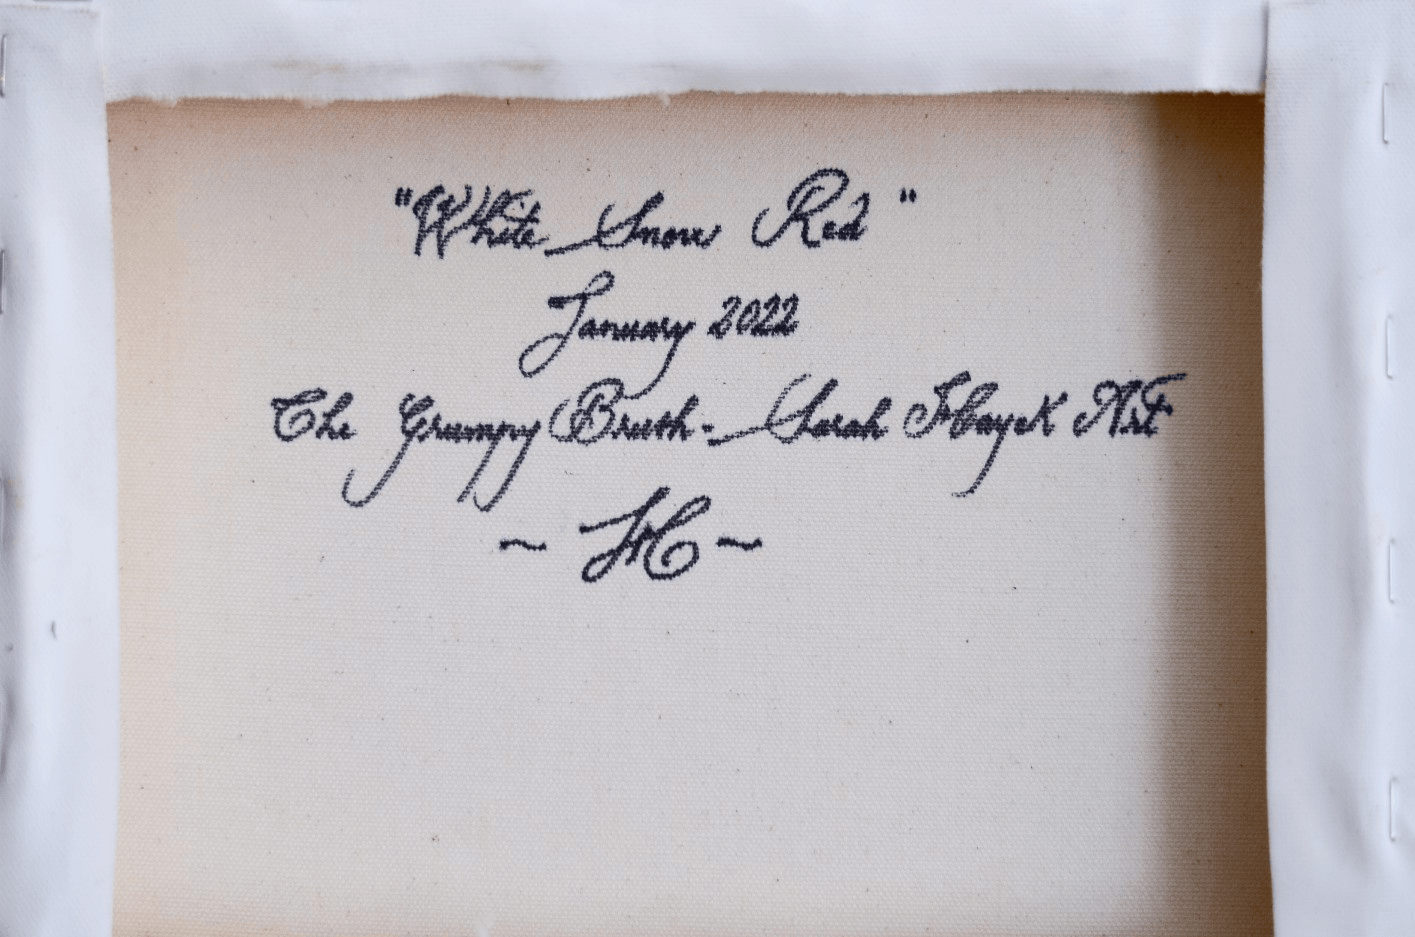 "White Snow Red"
January 2022
The Grumpy Brush - Sarah Hayek Art
~ H ~